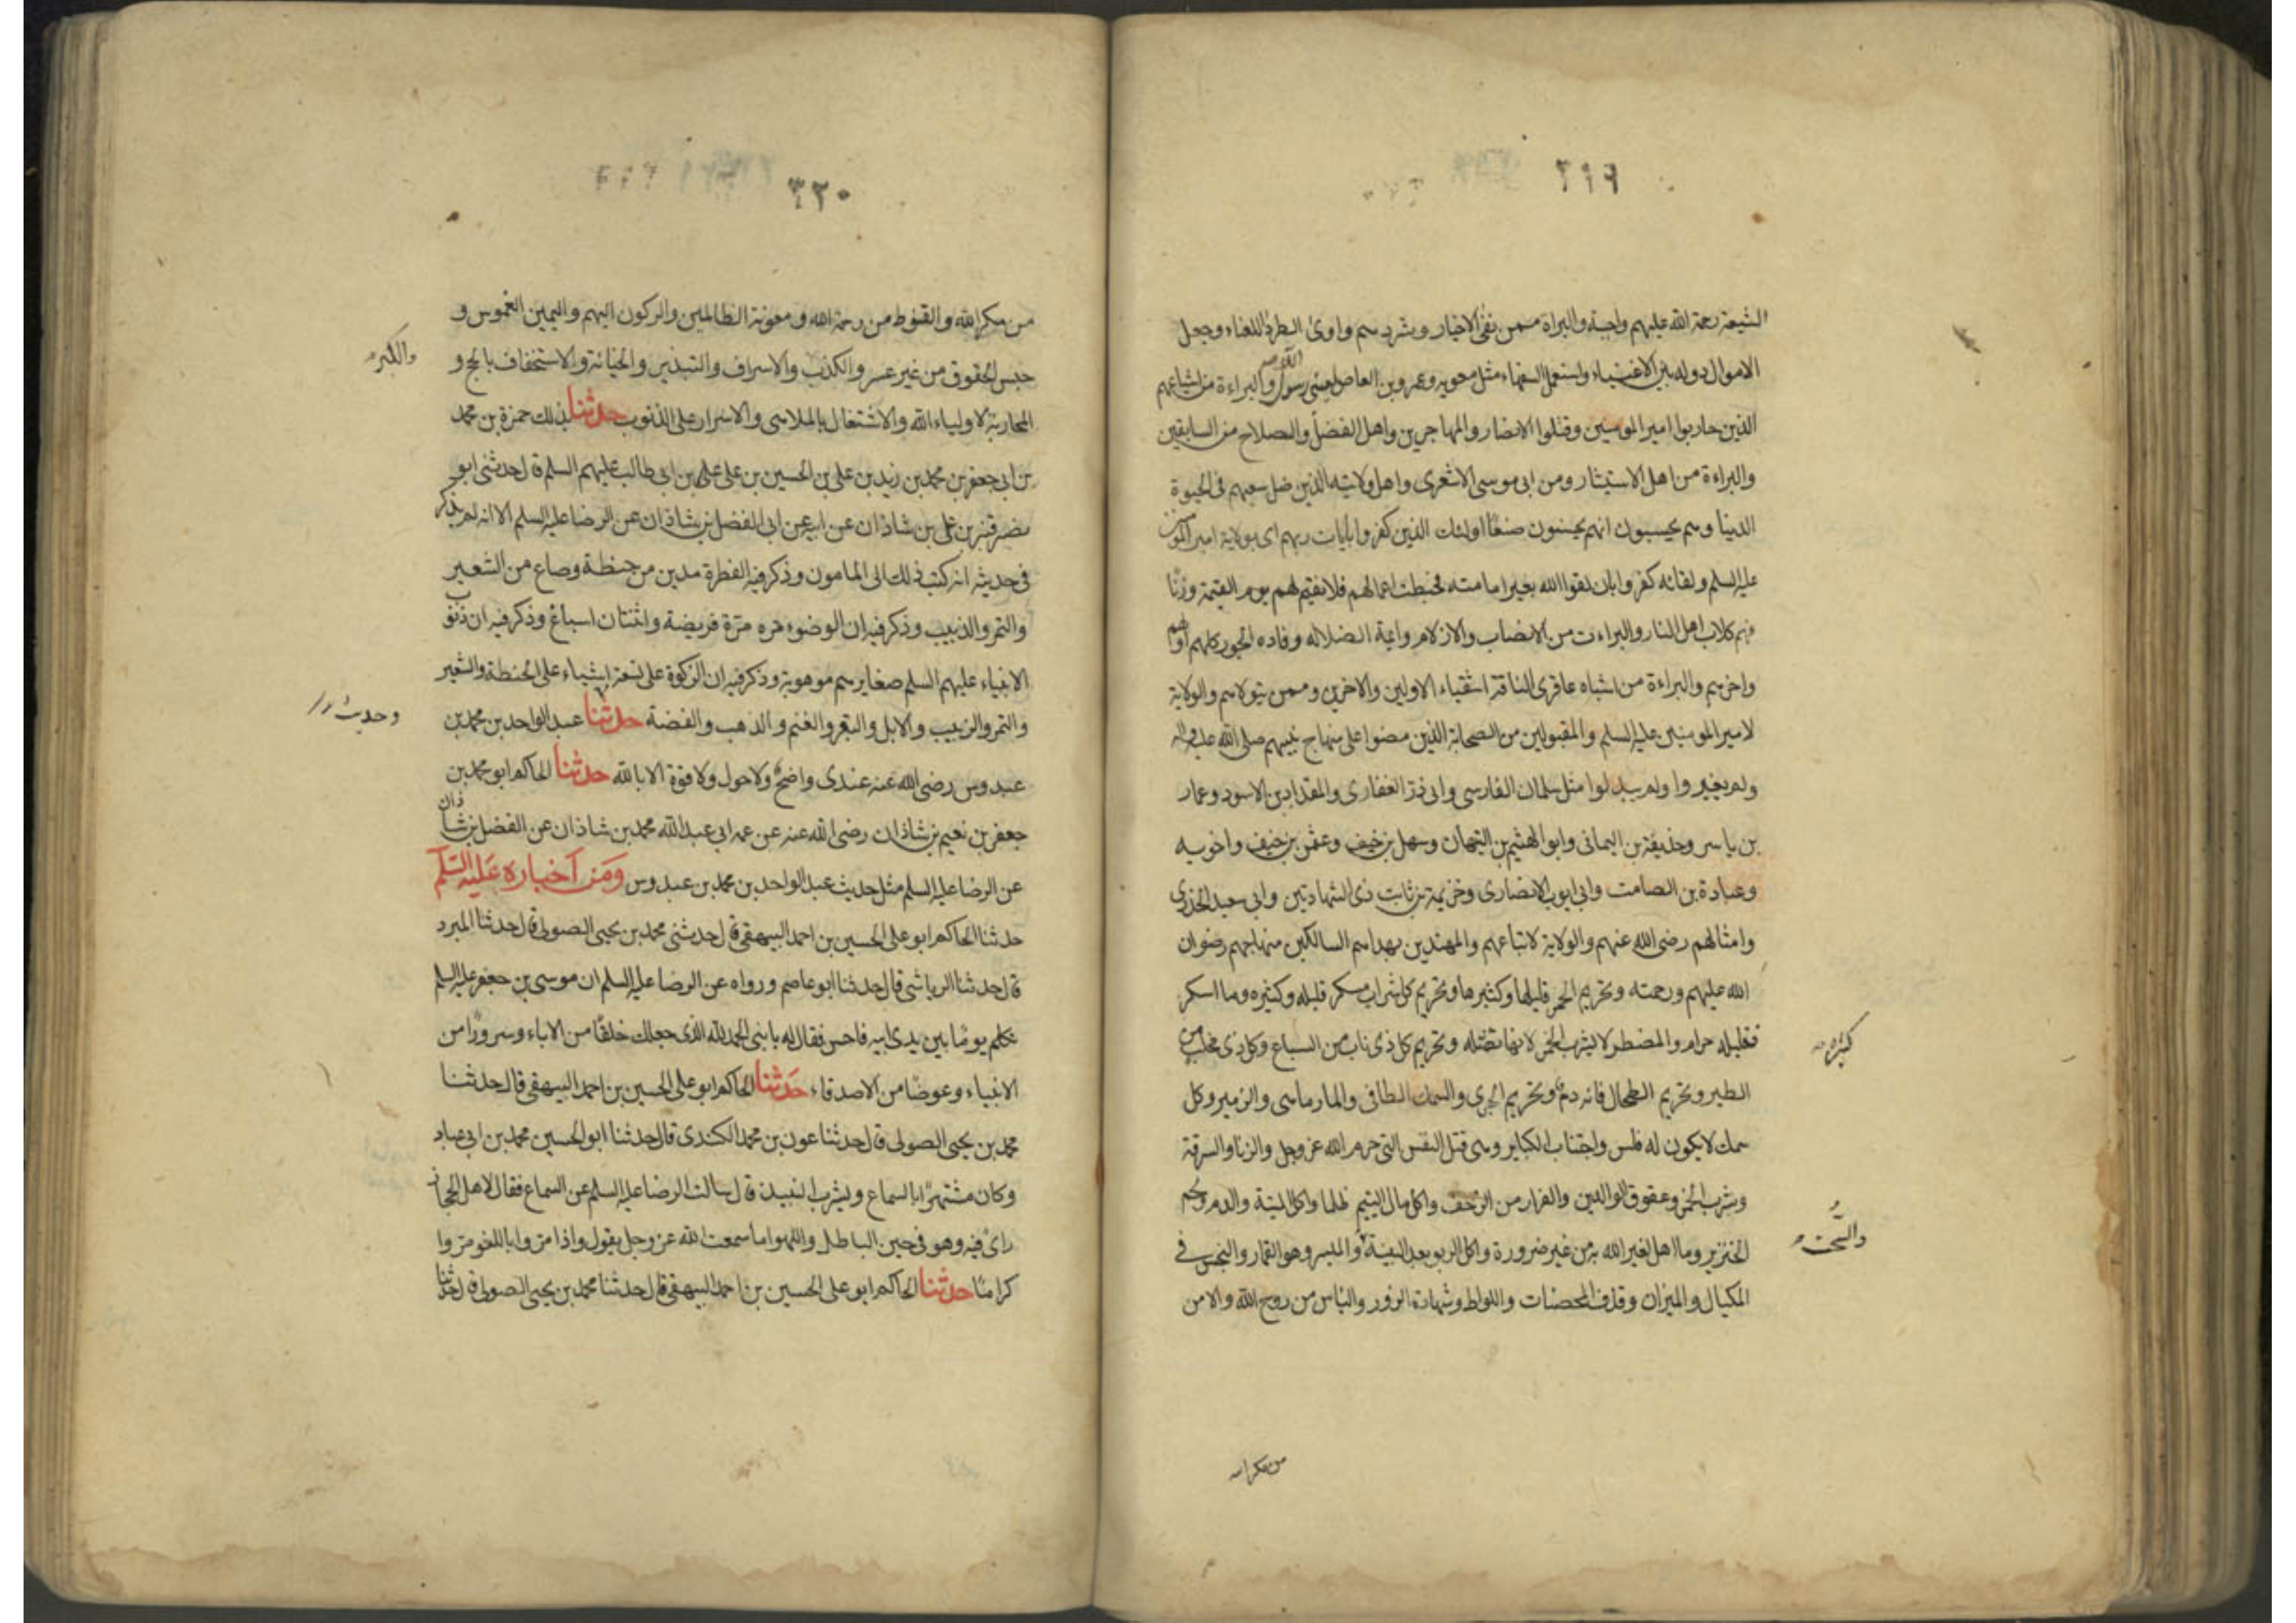 ٣١٩
الشيعة رحمة الله عليهم واجبة والبراة ممن نفى الاخيار وشردهم واوى الطرد اللعناء وجعل
الاموال دولة بين الاغنياء واستعمل السفهاء مثل معوية وعمرو بن العاص لعينى رسول الله ص والبراءة من اشياعهم
الذين حاربوا امير المومنين وقتلوا الانصار والمهاجرين واهل الفضل والصلاح من السابقين
والبراءة من اهل الاستيثار ومن ابى موسى الاشعرى واهل ولايته الذين ضل سعيهم فى الحيوة
الدنيا وهم يحسبون انهم يحسنون صنعا اولئك الذين كفروا بايات ربهم اى بولاية امير المومنين
عليه السلم ولقائه كفروا بان لقوا الله بغير امامته فحبطت اعمالهم فلا نقيم لهم يوم القيمة وزنا
فهم كلاب اهل النار والبراءت من الانصاب والازلام وايمة الضلاله وقاده الجور كلهم اولهم
واخرهم والبراءة من اشباه عاقرى الناقة اشقياء الاولين والاخرين وممن يتولاهم والولاية
لامير المومنين عليه السلم والمقبولين من الصحابة الذين مضوا على منهاج نبيهم صلى الله عليه واله
ولم يغيروا ولم يبدلوا مثل سلمان الفارسى وابى ذر الغفارى والمقداد بن الاسود وعمار
بن ياسر وحذيفة بن اليمانى وابو الهثيم بن التيهان وسهل بن حنيف وعثمن بن حنيف واخويه
وعبادة بن الصامت وابى ايوب الانصارى وخزيمة بن ثابت ذى الشهادتين وابى سعيد الخدرى
وامثالهم رضى الله عنهم والولاية لاتباعهم والمهتدين بهداهم السالكين منهاجهم رضوان
الله عليهم ورحمته وتحريم الخمر قليلها وكثيرها وتحريم كل شراب مسكر قليله وكثيره وما اسكر
فقليله حرام والمضطر لا يشرب الخمر لانها تقتله وتحريم كل ذى ناب من السباع وكل ذى مخلب من
كثيره
الطير وتحريم الطحال فانه دم وتحريم الجرى والسمك الطافى والمارماهى والزمير وكل
سمك لا يكون له فلس واجتناب الكباير وهى قتل النفس التى حرم الله عز وجل والزنا والسرقة
وشرب الخمر وعقوق الوالدين والفرار من الزحف واكل مال اليتيم ظلما واكل الميتة والدم ولحم
الخنزير وما اهل لغير الله به من غير ضرورة واكل الربو بعد البينة والميسر وهو القمار والبخس فى
والسحت
المكيال والميزان وقذف المحصنات واللواط وشهادة الزور والياس من روح الله والامن
من مكر الله
٣٢٠
من مكر الله والقنوط من رحمة الله ومعونة الظالمين والركون اليهم واليمين الغموس و
حبس الحقوق من غير عسر والكذب والاسراف والتبذير والخيانة والاستخفاف بالحج و
والكبر
المحاربة لاولياء الله والاشتغال بالملاهى والاسرار على الذنوب حدثنا بذلك حمزة بن محمد
بن ابى جعفر بن محمد بن زيد بن على بن الحسين بن على على بن ابى طالب عليهم السلم قال حدثنى ابو
نصر قنبر بن على بن شاذان عن ابيه عن ابى الفضل بن شاذان عن الرضا عليه السلم الا انه لم يذكر
فى حديثه انه كتب ذلك الى المامون وذكر فيه الفطرة مدين من حنطة وصاع من الشعير
والتمر والذبيب وذكر فيه ان الوضوء مره مرة فريضة واثنتان اسباغ وذكر فيه ان ذنوب
الانبياء عليهم السلم صغايرهم موهوبة وذكر فيه ان الزكوة على تسعة اشياء على الحنطة والشعير
والتمر والزبيب والابل والبقر والغنم والذهب والفضة حدثنا عبد الواحد بن محمد بن
وحديث
عبدوس رضى الله عنه عندى واضح ولا حول ولا قوة الا بالله حدثنا الحاكم ابو محمد بن
جعفر بن نعيم بن شاذان رضى الله عنه عن عمه ابى عبد الله محمد بن شاذان عن الفضل بن شاذان
عن الرضا عليه السلم مثل حديث عبد الواحد بن محمد بن عبدوس ومن اخباره عليه السلم
حدثنا الحاكم ابو على الحسين بن احمد البيهقى قال حدثنى محمد بن يحيى الصولى قال حدثنا المبرد
قال حدثنا الرياشى قال حدثنا ابو عاصم ورواه عن الرضا عليه السلم ان موسى بن جعفر عليه السلم
تكلم يوما بين يدى ابيه فاحسن فقال له يا بنى الحمد لله الذى جعلك خلفا من الاباء وسرورا من
الانبياء وعوضا من الاصدقاء حدثنا الحاكم ابو على الحسين بن احمد البيهقى قال حدثنا
محمد بن يحيى الصولى قال حدثنا عون بن محمد الكندى قال حدثنا ابو الحسين محمد بن ابى عباد
وكان مشتهرا بالسماع وبشرب النبيذ قال سالت الرضا عليه السلم عن السماع فقال لاهل الحجاز
راى فيه وهو فى حين الباطل واللهو اما سمعت الله عز وجل يقول واذا مروا باللغو مروا
كراما حدثنا الحاكم ابو على الحسين بن احمد البيهقى قال حدثنا محمد بن يحيى الصولى قال حدثنا